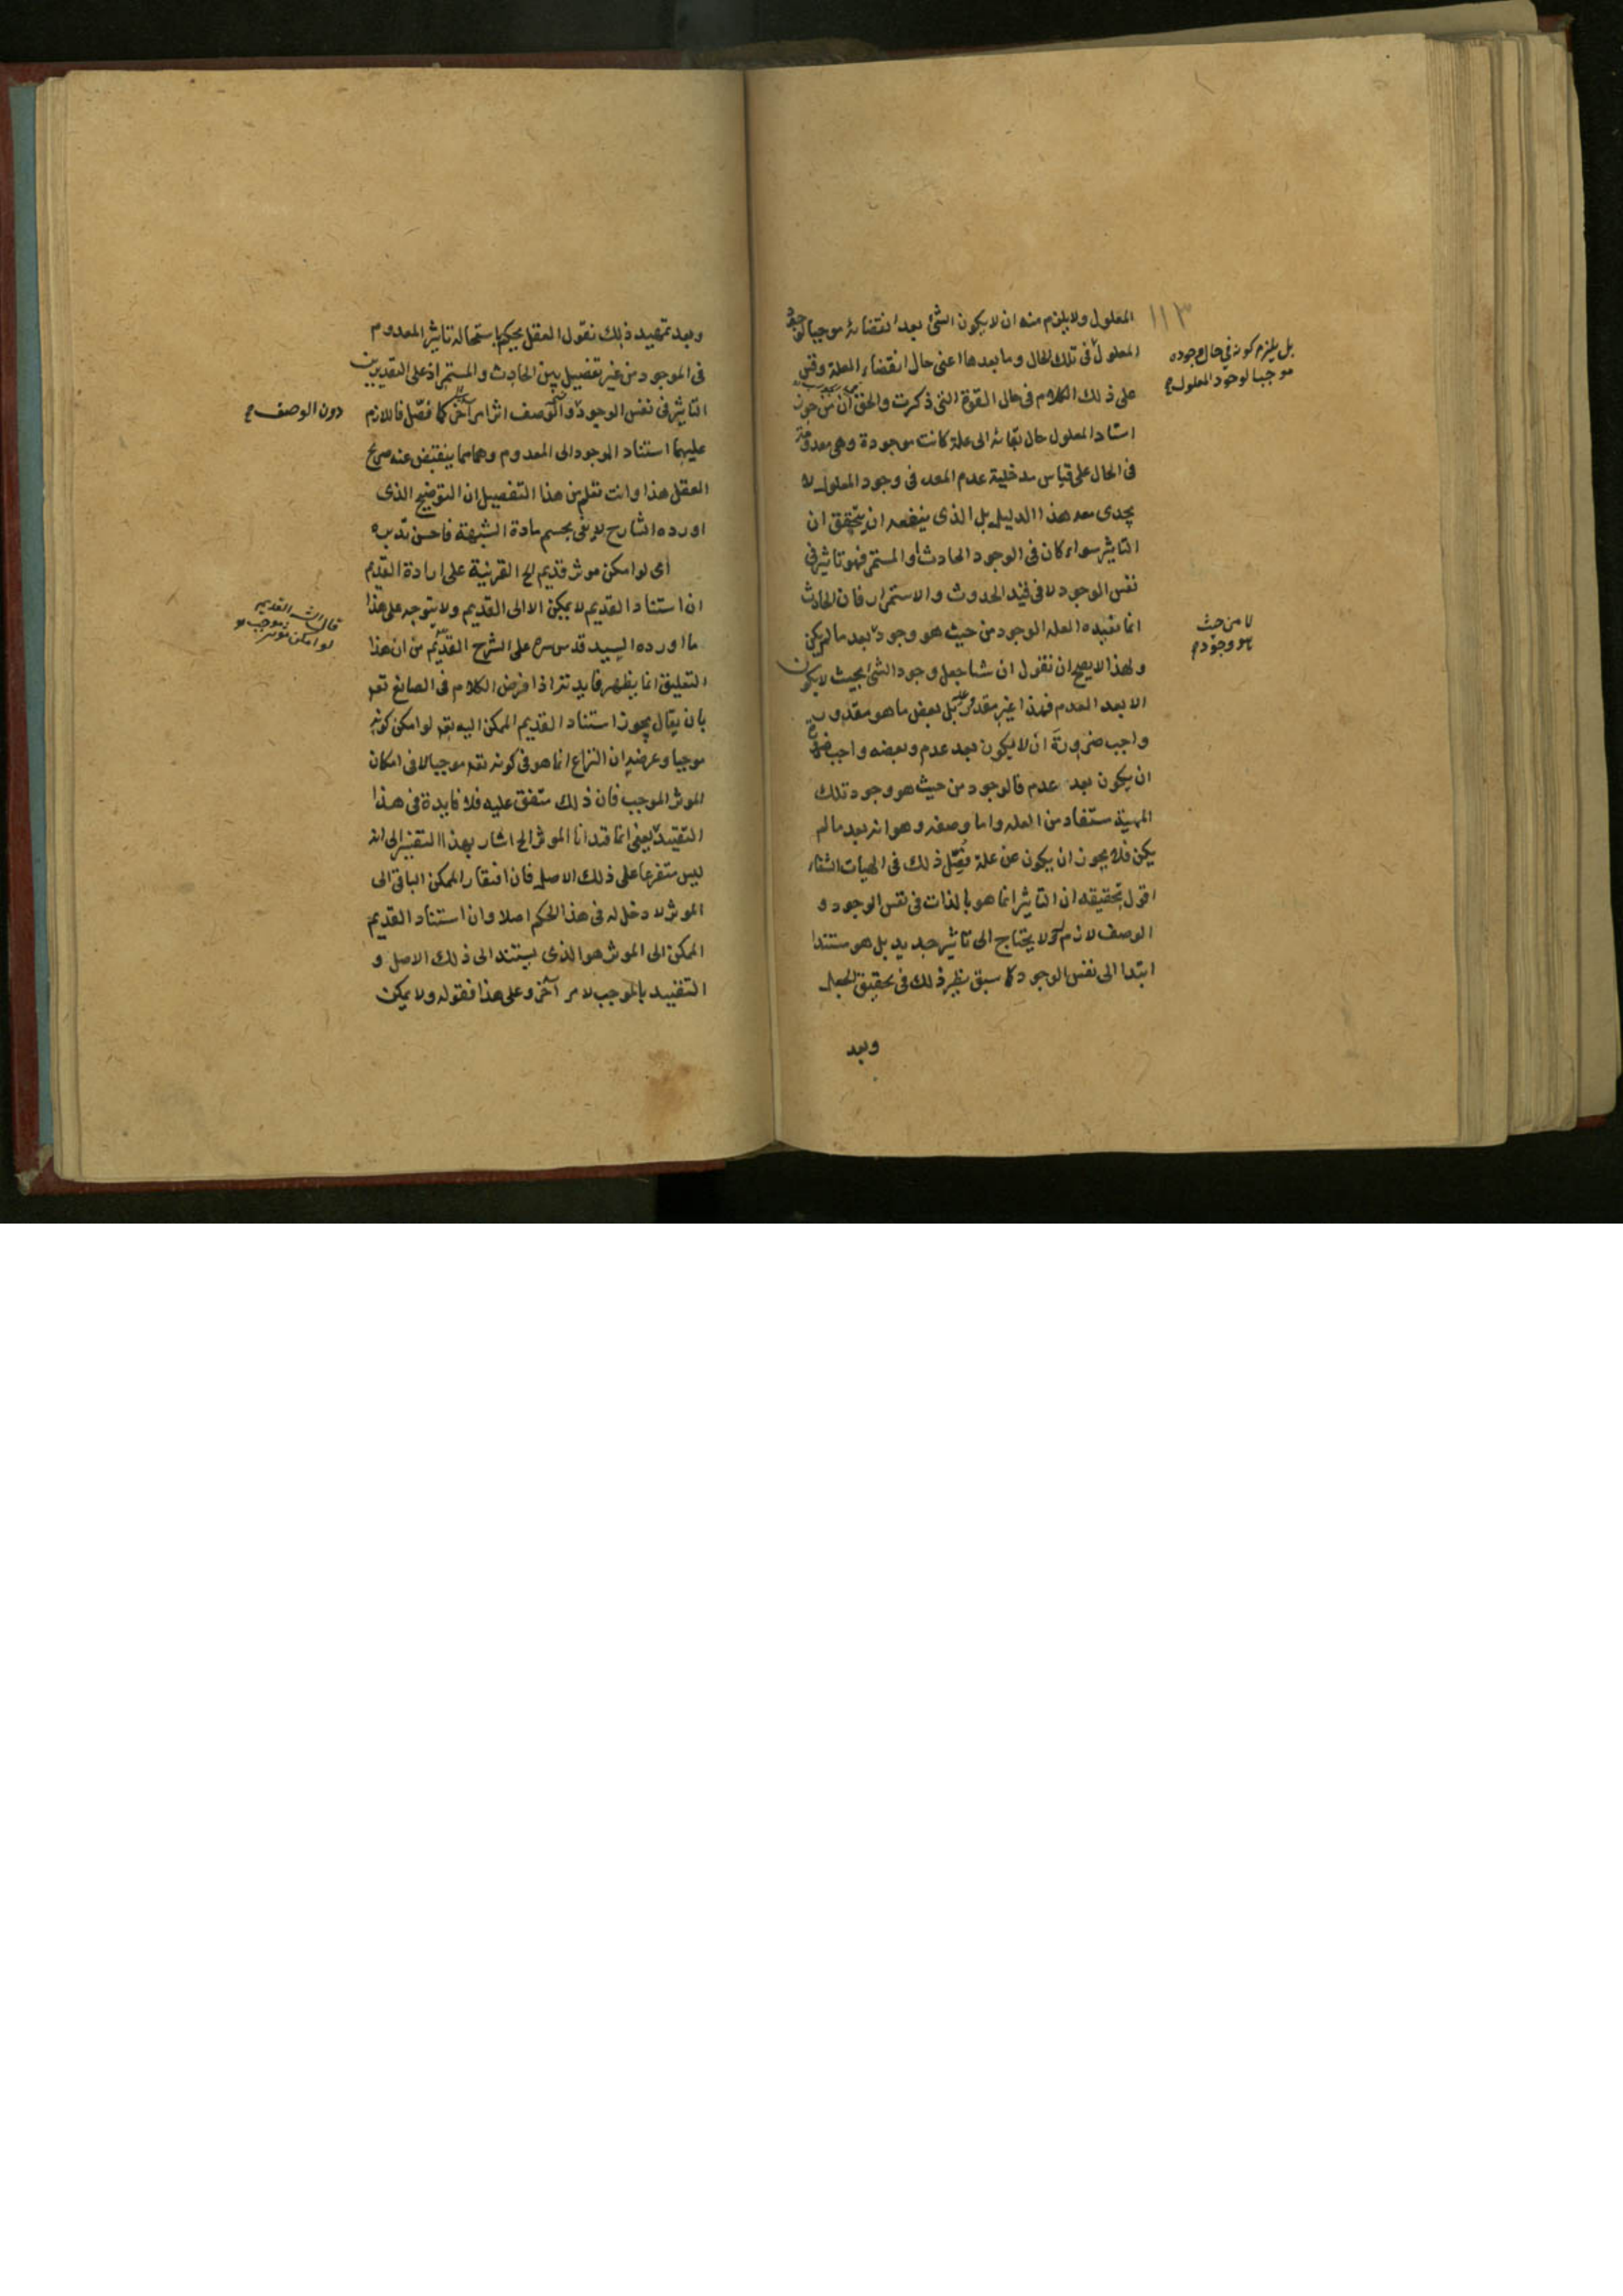 ١١٣
المعلول ولا يلزم منه ان لا يكون الشئ بعد انقضائه موجبا لوجود
المعلول في تلك الحال وما بعدها اعنى حال انقضاء العلة وقس
على ذلك الكلام فى حال القوة التى ذكرت والحق ان من جوز
استناد المعلول حال بقائه الى علة كانت موجودة وهى معدومة
فى الحال على قياس مدخلية عدم المعد فى وجود المعلول لا
يجدى معه هذا الدليل بل الذى ينفعه ان يتحقق ان
التاثير سواء كان فى الوجود الحادث او المستمر فهو تاثير فى
نفس الوجود لا فى قيد الحدوث والاستمرار فان الحادث
انما تفيده العله الوجود من حيث هو وجود بعد ما لم يكن
ولهذا لا يصح ان نقول ان شيئا جعل وجود الشئ بحيث لا يكون
الا بعد العدم فهذا غير مقدور عليه بل بعض ما هو مقدور
واجب ضرورة ان لا يكون بعد عدم وبعضه واجب ضرورة
ان يكون بعد عدم فالوجود من حيث هو وجود تلك
المهية مستفاد من العله واما وصفه وهو انه بعد ما لم
يكن فلا يجوز ان يكون عن علة فصّل ذلك فى الهيات الشفاء
اقول تحقيقه ان التاثير انما هو بالذات فى نفس الوجود و
الوصف لازم له لا يحتاج الى تاثير جديد بل هو مستندا
ابتدا الى نفس الوجود كما سبق نظير ذلك فى تحقيق الجعل
وبعد
بل يلزم كونه في حال وجوده
موجبا لوجود المعلول
لا من حيث
هو وجود
وبعد تمهيد ذلك نقول العقل يحكم باستحالة تاثير المعدوم
فى الموجود من غير تفصيل بين الحادث والمستمر اذ على التقديرين
التاثير فى نفس الوجود والوصف اثر امر آخر كما فصّل فاللازم
عليهما استناد الموجود الى المعدوم وهما مما ينقبض عنه صريح
العقل هذا وانت تعلم من هذا التفصيل ان التوضيح الذى
اورده الشارح لا يفى بحسم مادة الشبهة فاحسن تدبره
اى لو امكن موثر قديم الخ القرينة على ارادة القديم
ان استناد القديم لا يمكن الا الى القديم ولا يتوجه على هذا
ما اورده السيد قدس سره على الشرح القديم من ان هذا
التعليق انما يظهر فايدته اذا فرض الكلام فى الصانع تعم
بان يقال يجوز استناد القديم الممكن اليه تعم لو امكن كونه
موجبا وعرضه ان النزاع انما هو فى كونه تعم موجبا لا فى امكان
الموثر الموجب فان ذلك متفق عليه فلا فايدة فى هذا
التقييد يعنى انما قيدنا الموثر الخ اشار بهذا التفسير الى انه
ليس متفرعا على ذلك الاصل فان افتقار الممكن الباقى الى
الموثر لا دخل له فى هذا الحكم اصلا وان استناد القديم
الممكن الى الموثر هو الذى يستند الى ذلك الاصل و
التقييد بالموجب لامر آخر وعلى هذا فقوله ولا يمكن
دون الوصف
قال الش القديم
لو امكن موثر موجب